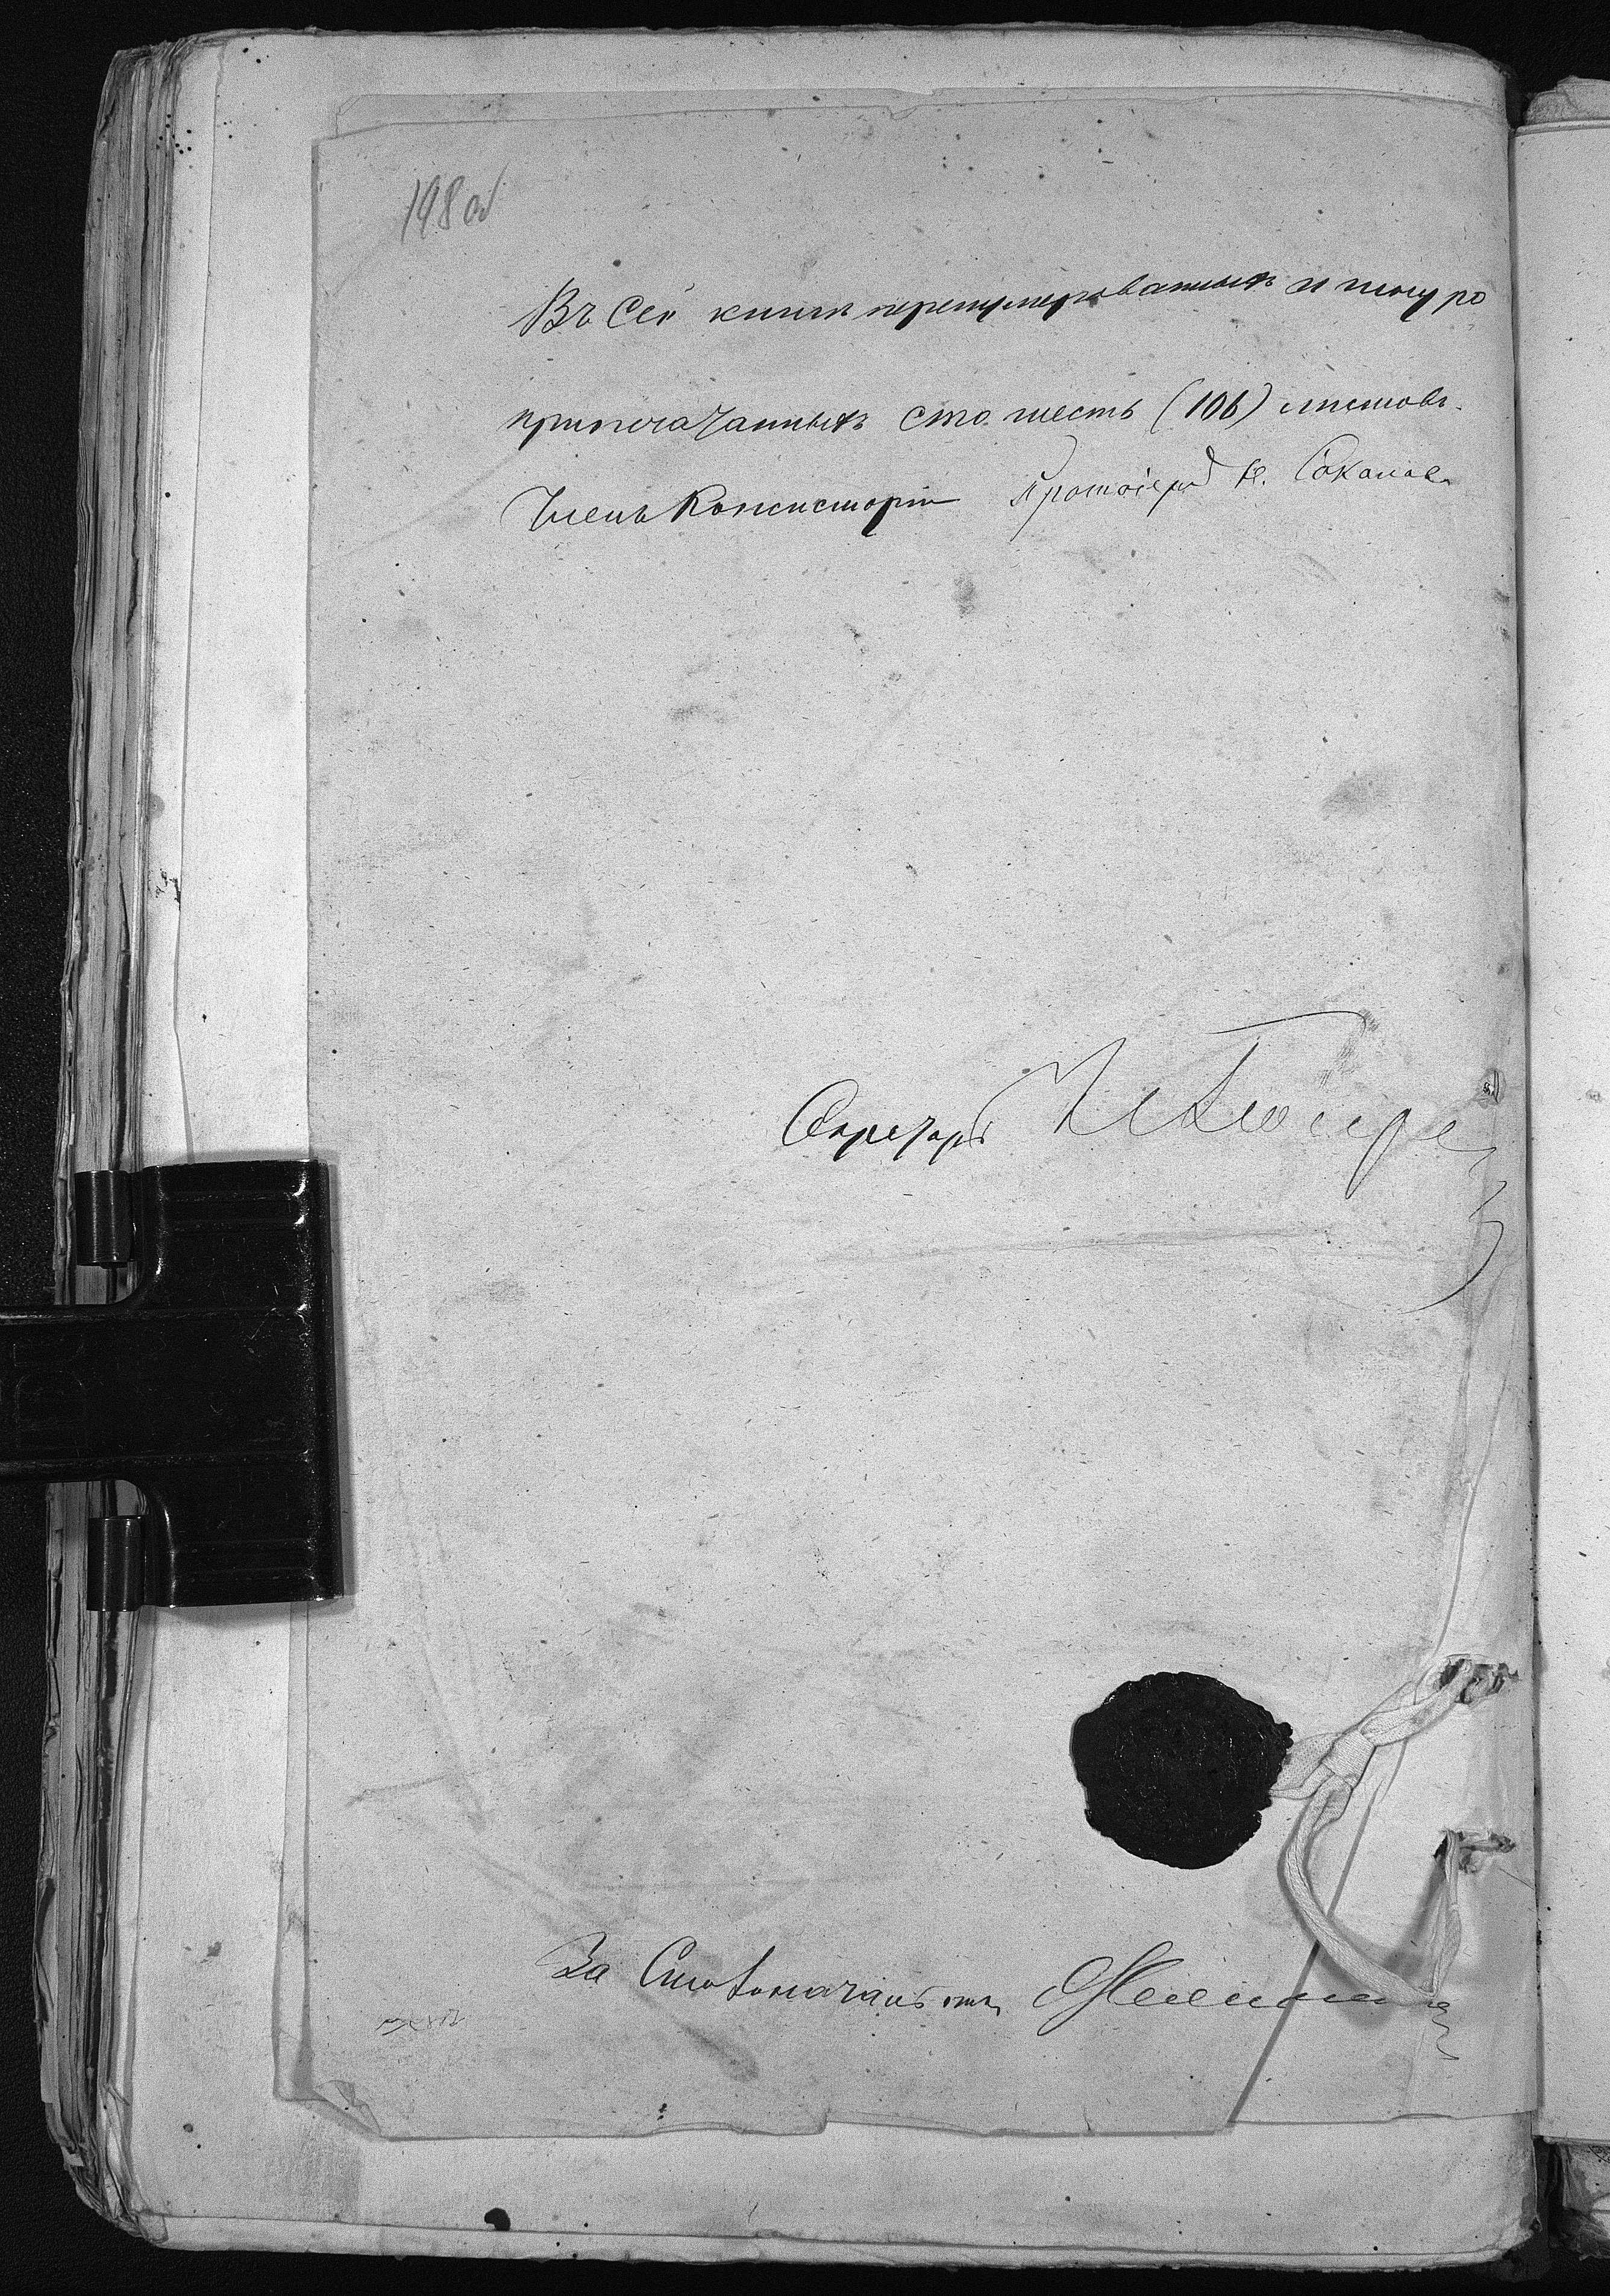 198 об
Въ сей книгѣ перенумерованныхъ и шнуро
припечатанныхъ сто шесть (106) листовъ.
Членъ Консисторіи Протоіерей Н. Соколовъ
Секретарь
За Столоначальника